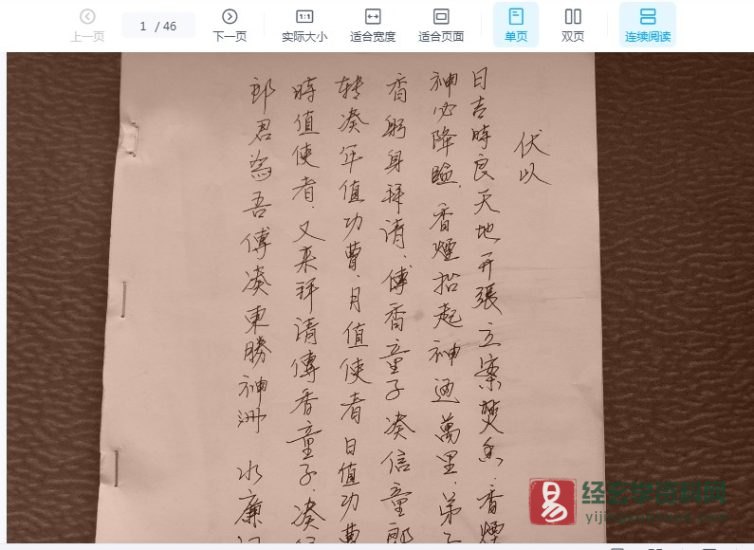 上一页
1 / 46
下一页
1:1
实际大小
适合宽度
适合页面
单页
双页
连续阅读
伏以
日吉時良天地开張立案焚香香煙
神必降臨.香煙抬起神通萬里.弟子
香躬身拜请.傅香童子凑信童郎
转凑年值功曹.月值使者日值功曹
時值使者.又来拜请傅香童子.凑
郎君為吾傅凑東勝神洲 水廉
易